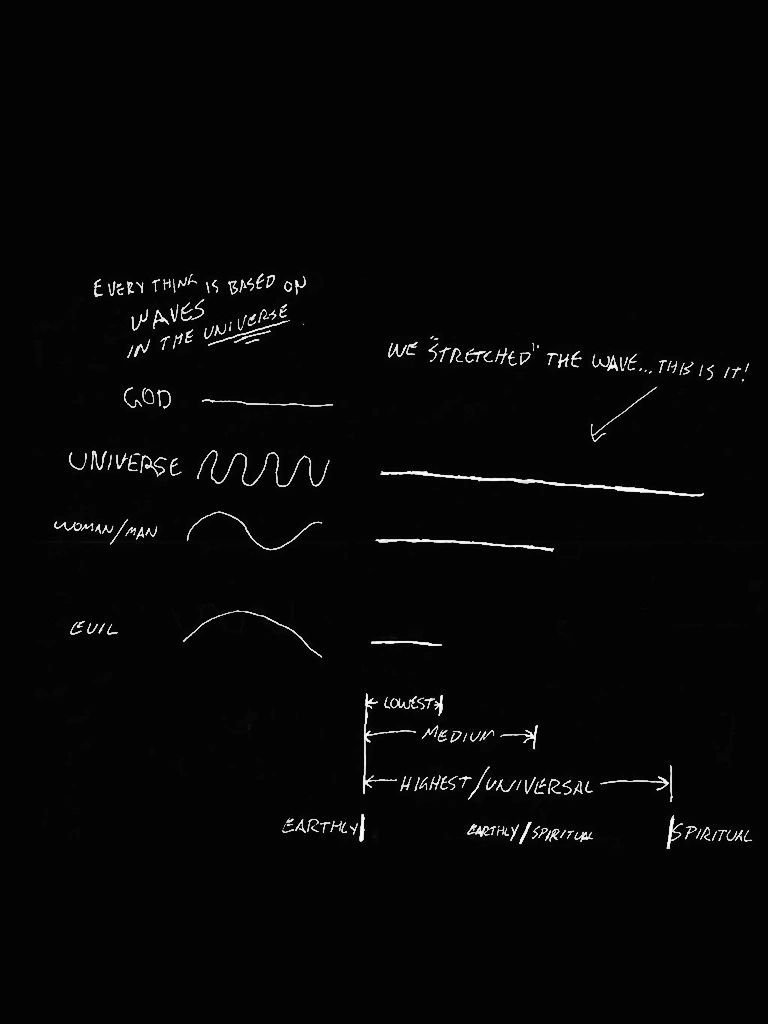 EVERY THING IS BASED ON
WAVES
IN THE UNIVERSE
WE "STRETCHED" THE WAVE... THIS IS IT!
GOD
UNIVERSE
WOMAN/MAN
EVIL
LOWEST
MEDIUM
HIGHEST/UNIVERSAL
EARTHLY
EARTHLY/SPIRITUAL
SPIRITUAL